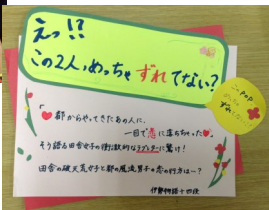 えっ!!
この2人,めっちゃずれてない?
「♥都からやってきたあの人に、
一目で恋に落ちちゃった♥」
そう語る田舎女子の衝撃的なラブレターに驚け!
田舎の破天荒女子と都の風流男子の恋の行方は…?
伊勢物語十四段
POP
ずれてない?